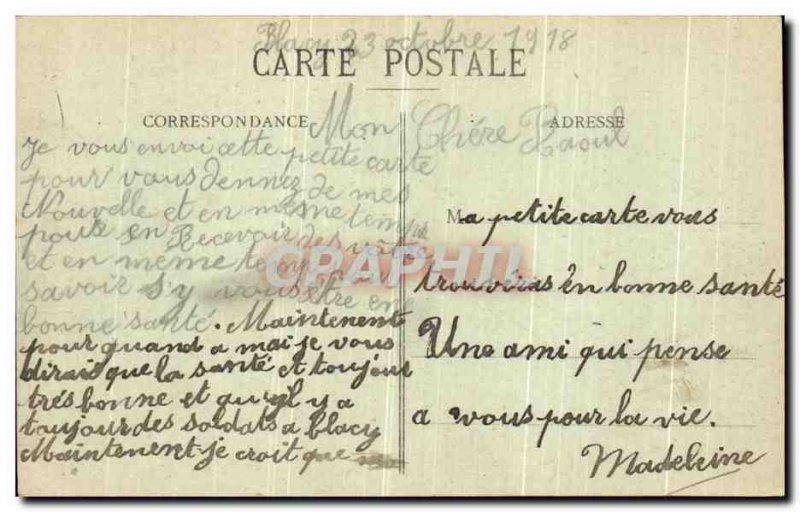 Blacy 23 octobre 1918
CARTE POSTALE
CORRESPONDANCE
ADRESSE
Mon Chére Raoul
Je vous envoi cette petite carte
pour vous dennez de mes
Nouvelle et en même temps
pour en Recevoir des vôtre
et en meme temps
savoir s'y vous être en
bonne santé. Maintenent
pour quand a mai je vous
dirais que la santé et toujour
trés bonne et qu'yl y a
toujour des soldats a blacy
Maintenent je croit que
Ma petite carte vous
trouvéras én bonne santé
Une ami qui pense
a vous pour la vie.
Madeleine
CPAPHIL